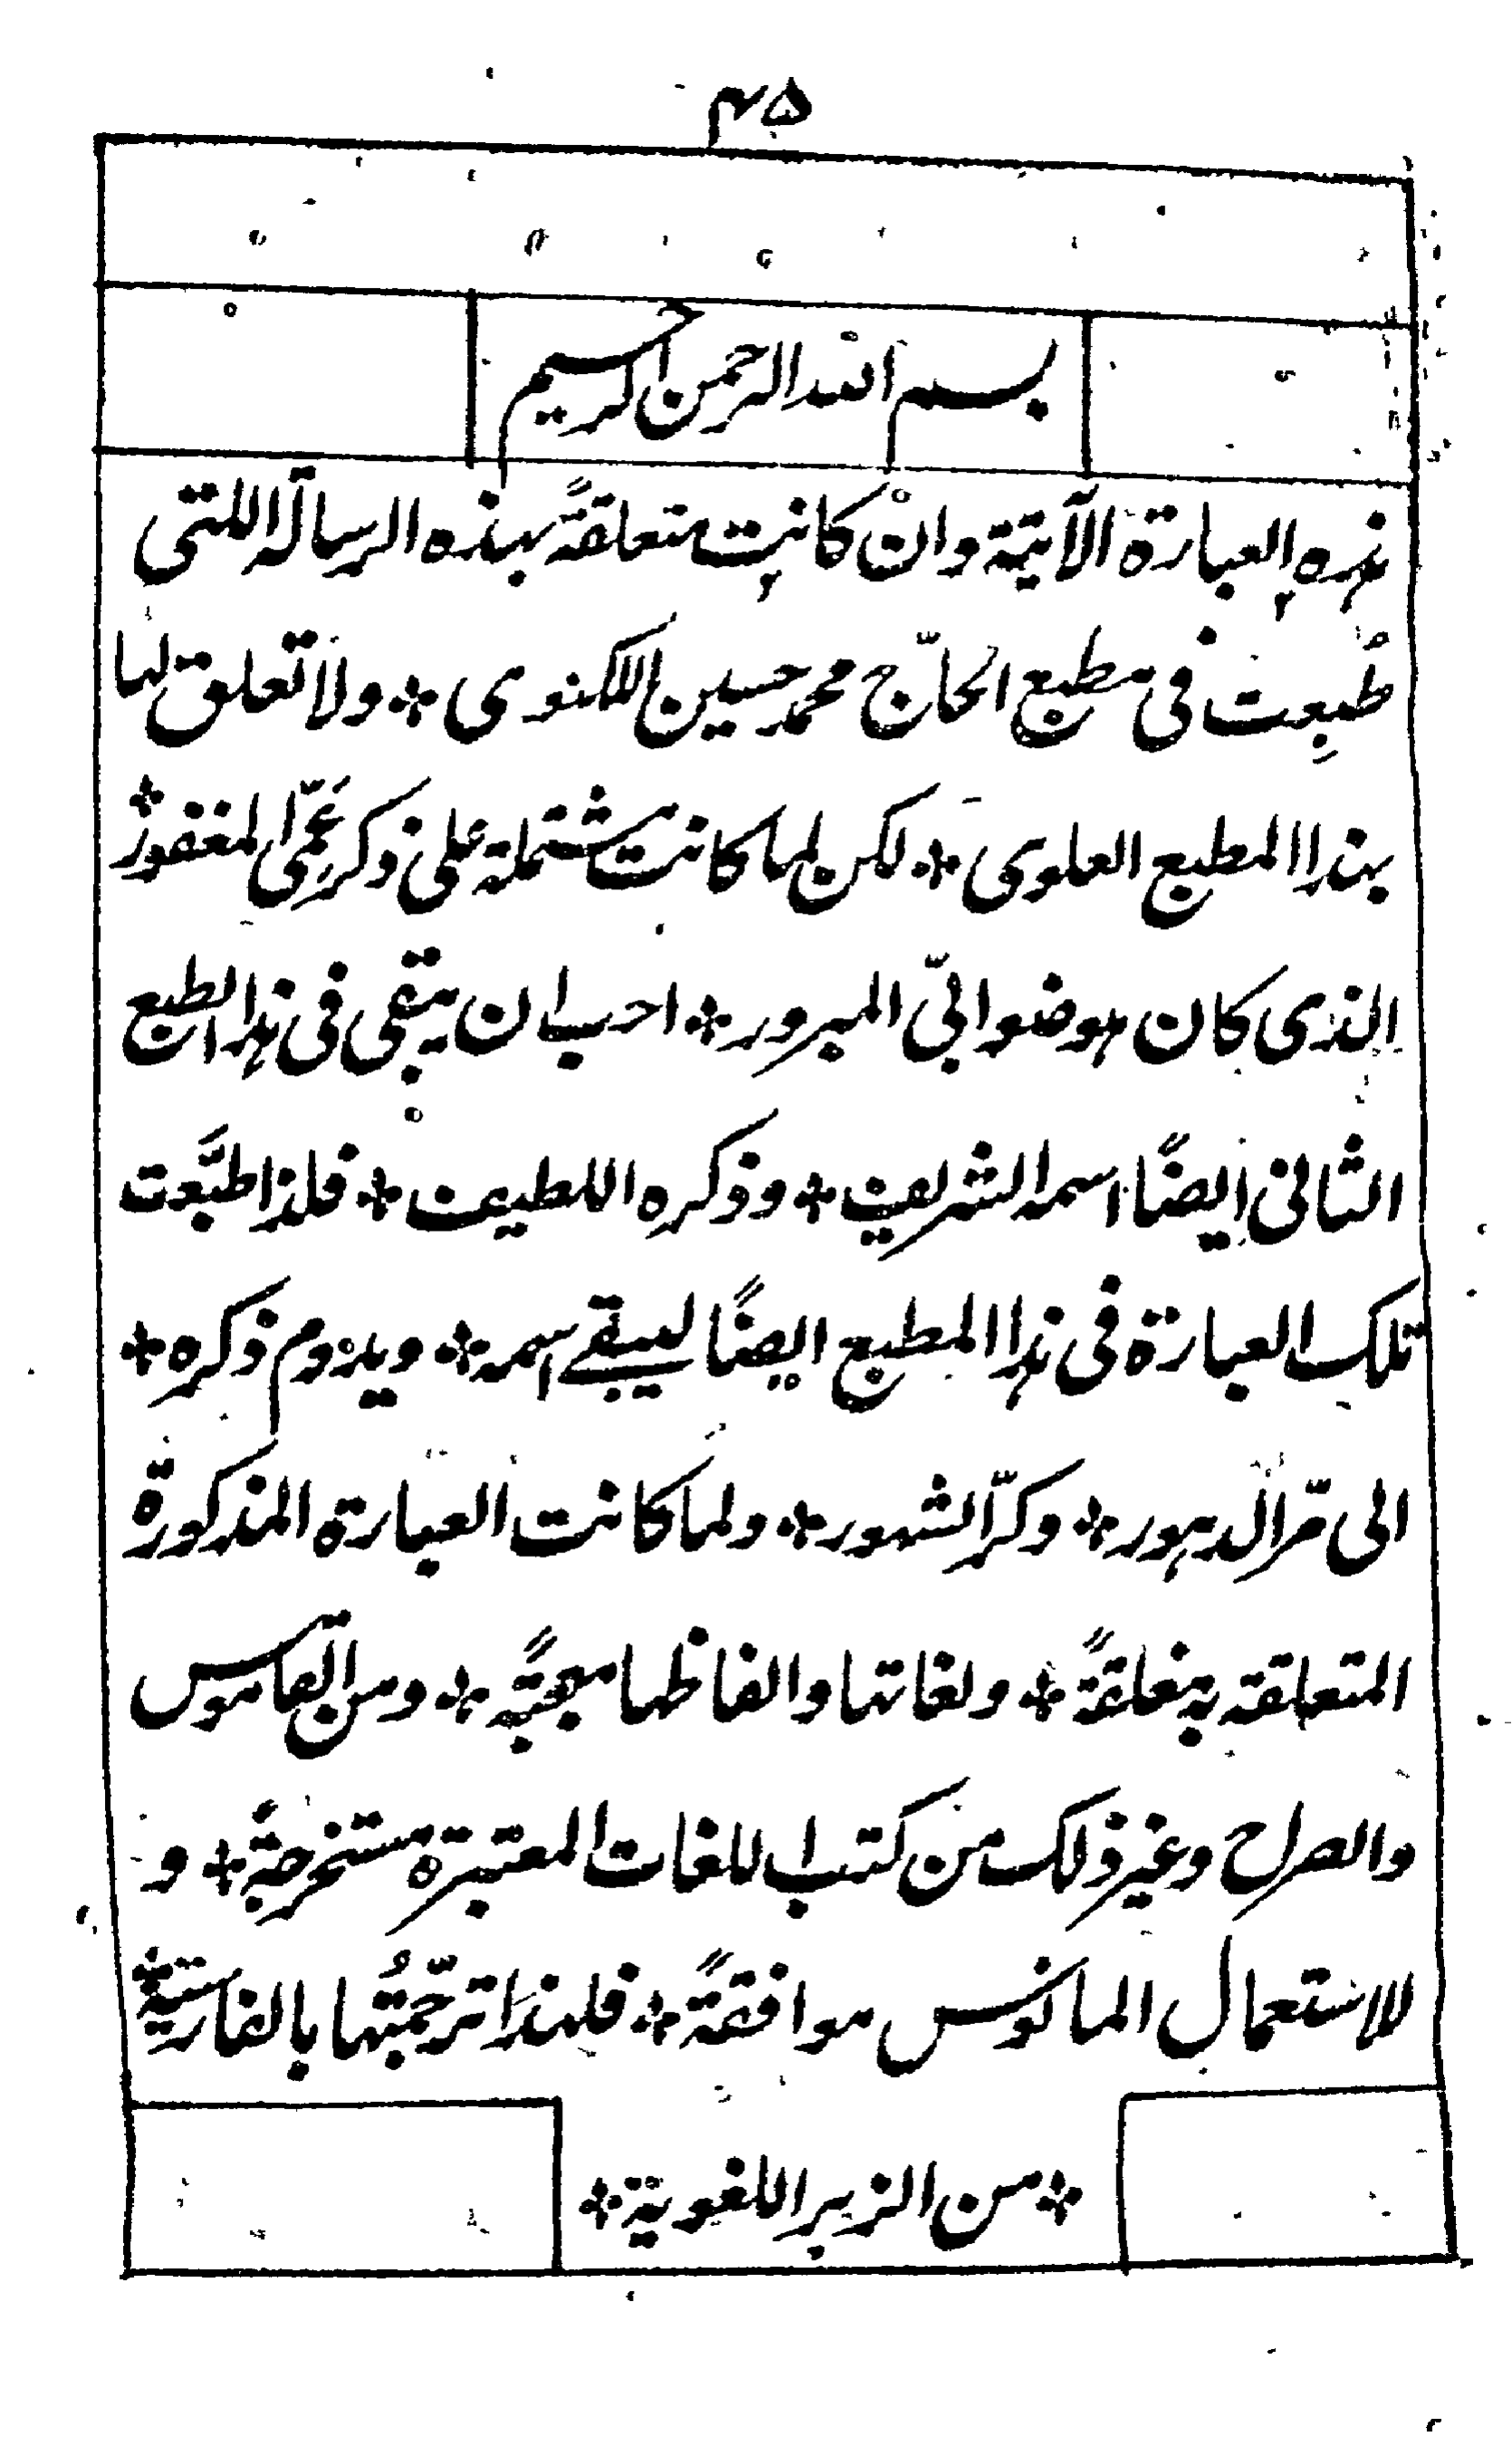 ۴۵
بسم الله الرحمن الرحيم
هذه العبارة الآتية وانْ كانت متعلقةً بهذه الرسالة اللتى
طُبِعت فى مطبع الحاجّ محمد حسين اللكنوى ❖ ولا تعلق لها
بهذا المطبع العلوى ❖ لكن لما كانت مشتملة على ذكر عَمّى المغفور ❖
الذى كان هو صنو ابىّ المبرور ❖ احب ان يبقى فى هذا الطبع
الثانى ايضًا اسمه الشريف ❖ وذكره اللطيف ❖ فلذا طبَّعت
تلك العبارة فى هذا المطبع ايضًا ليبقے اسمه ❖ ويدوم ذكره ❖
الى مرّ الدهور ❖ وكرّ الشهور ❖ ولما كانت العبارة المذكورة
المتعلقة به مغلقةً ❖ ولغاتها والفاظها معجبةً ❖ ومن القاموس
والصراح وغير ذلك من كتب اللغات المعتبرة مستخرجةً ❖ و
للاستعمال المانوس موافقةً ❖ فلهذا ترجّمتُها بالفارسية ❖
❖ من الزبر اللغوية ❖